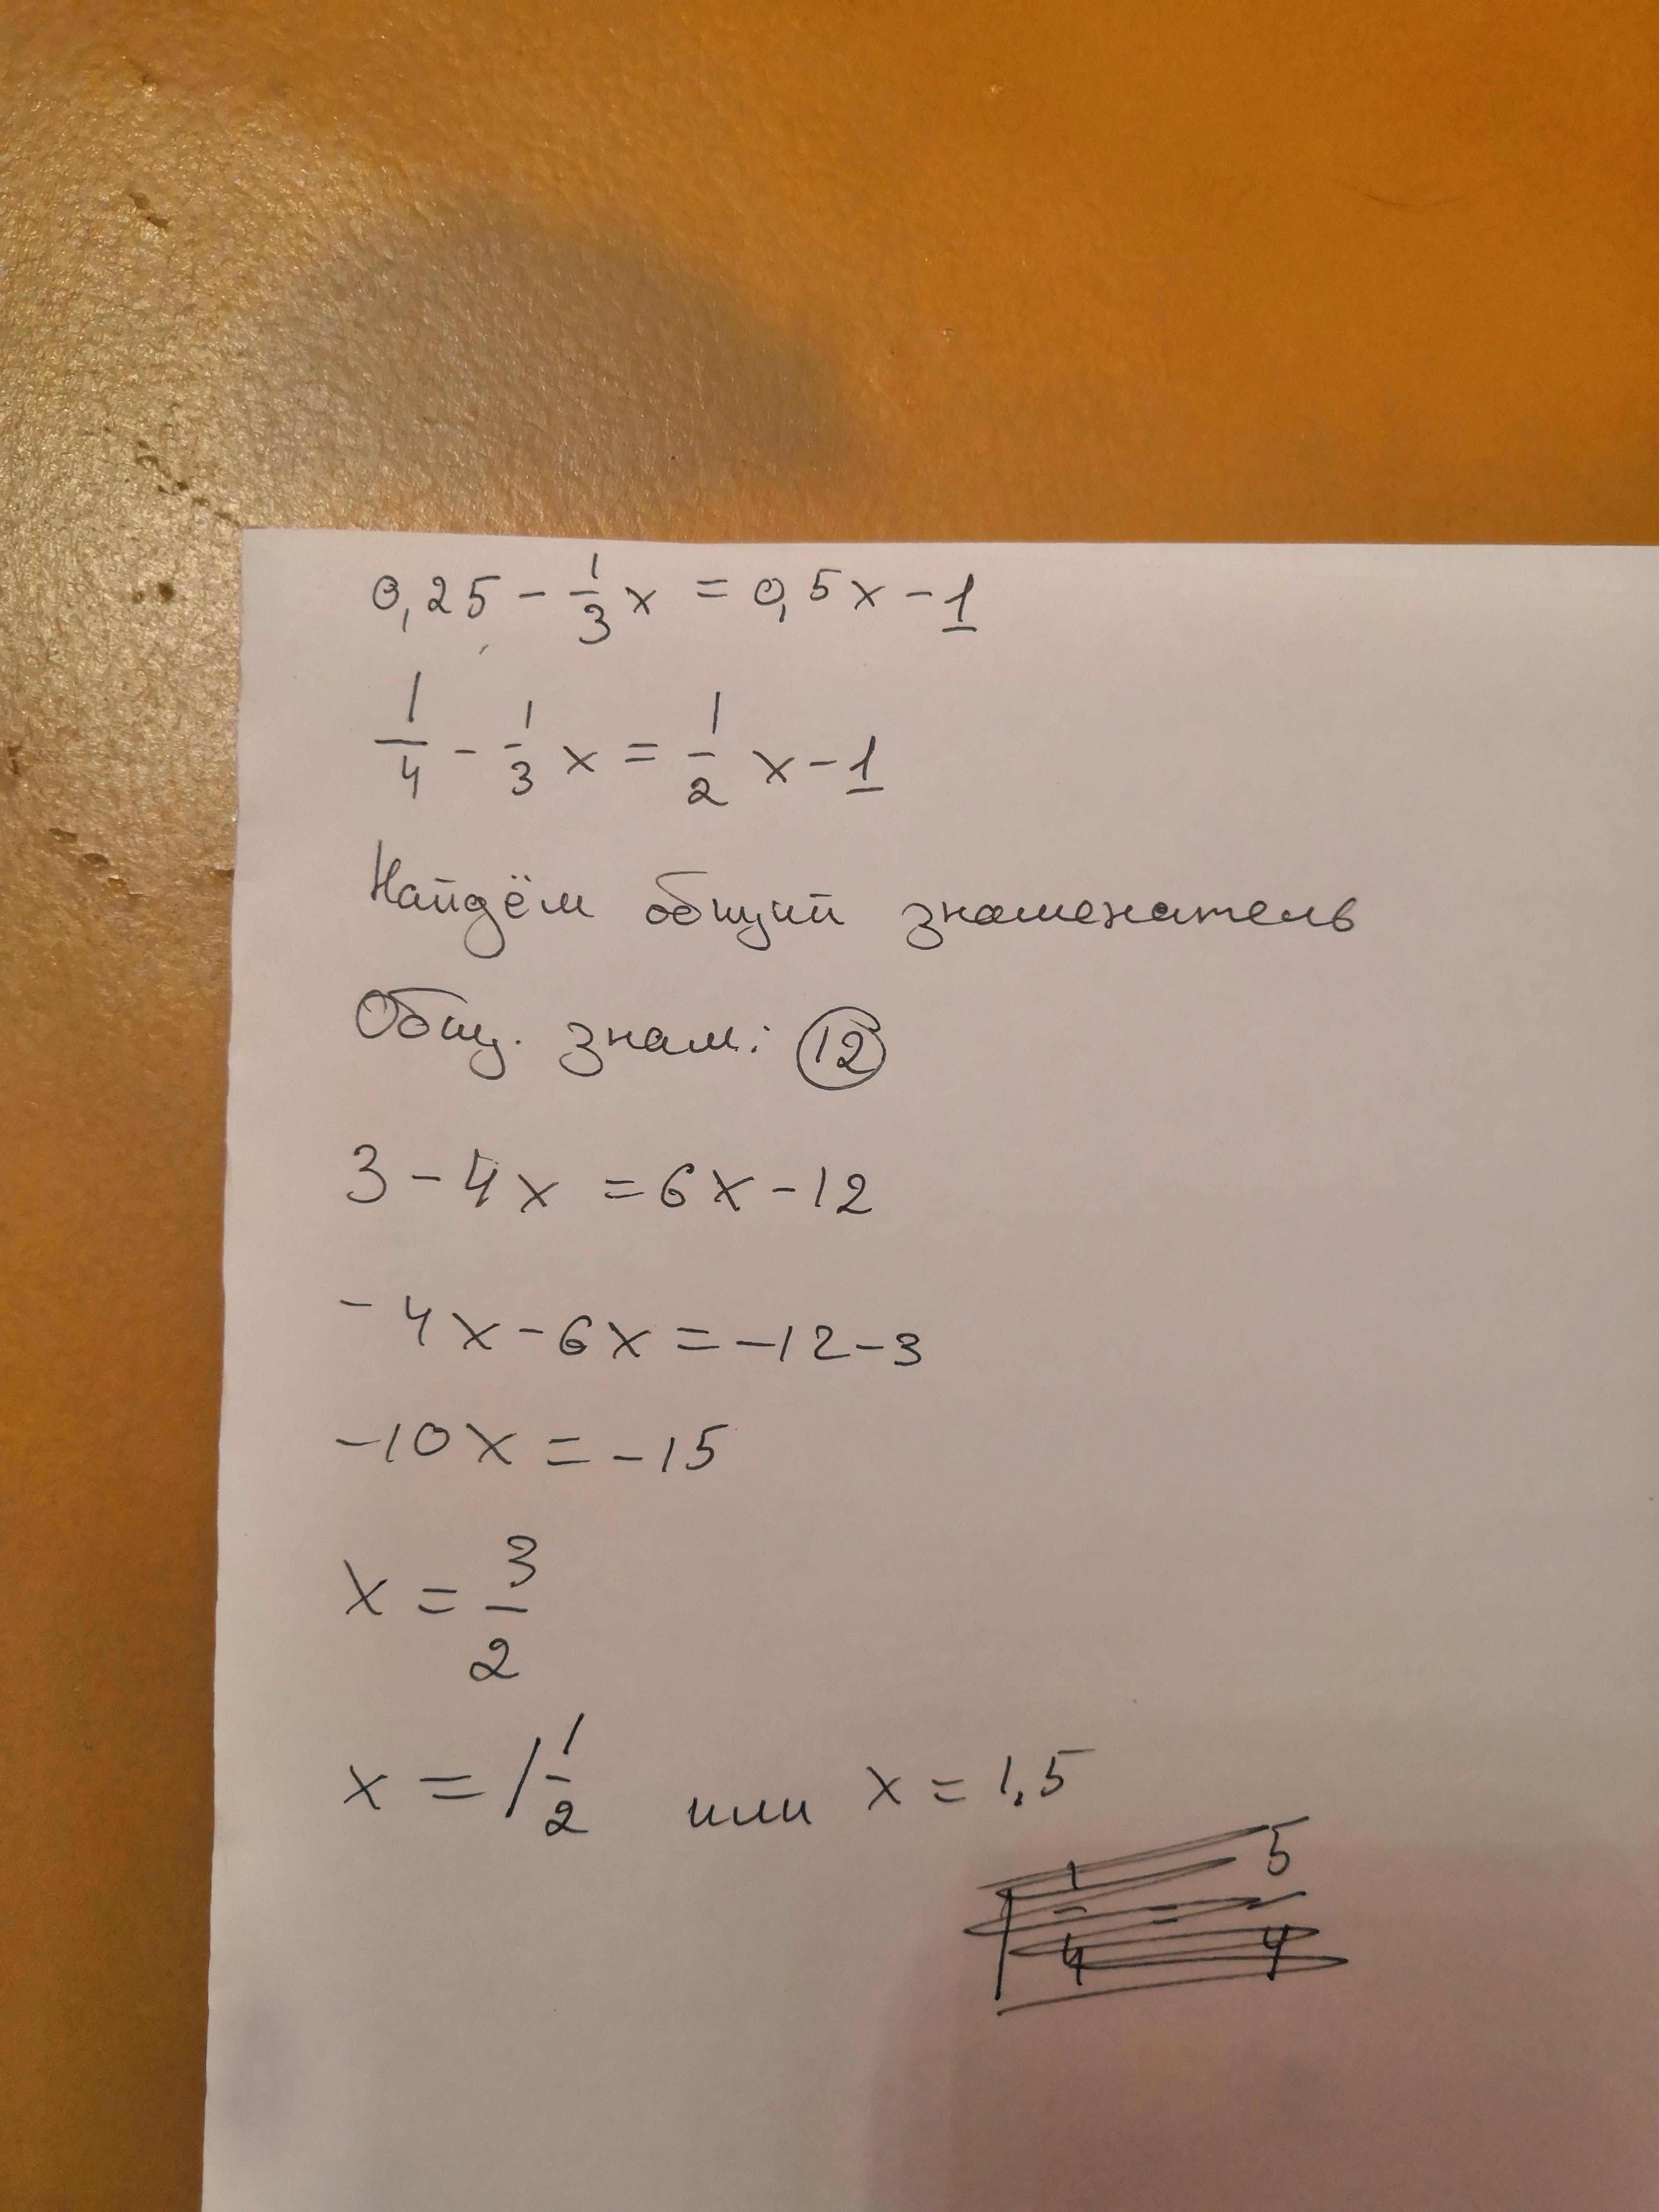 0,25 - 1/3 x = 0,5x - 1
1/4 - 1/3 x = 1/2 x - 1
Найдём общий знаменатель
Общ. знам: 12
3 - 4x = 6x - 12
- 4x - 6x = -12 - 3
-10x = -15
x = 3/2
x = 1 1/2 или x = 1,5
1 1/4 = 5/4